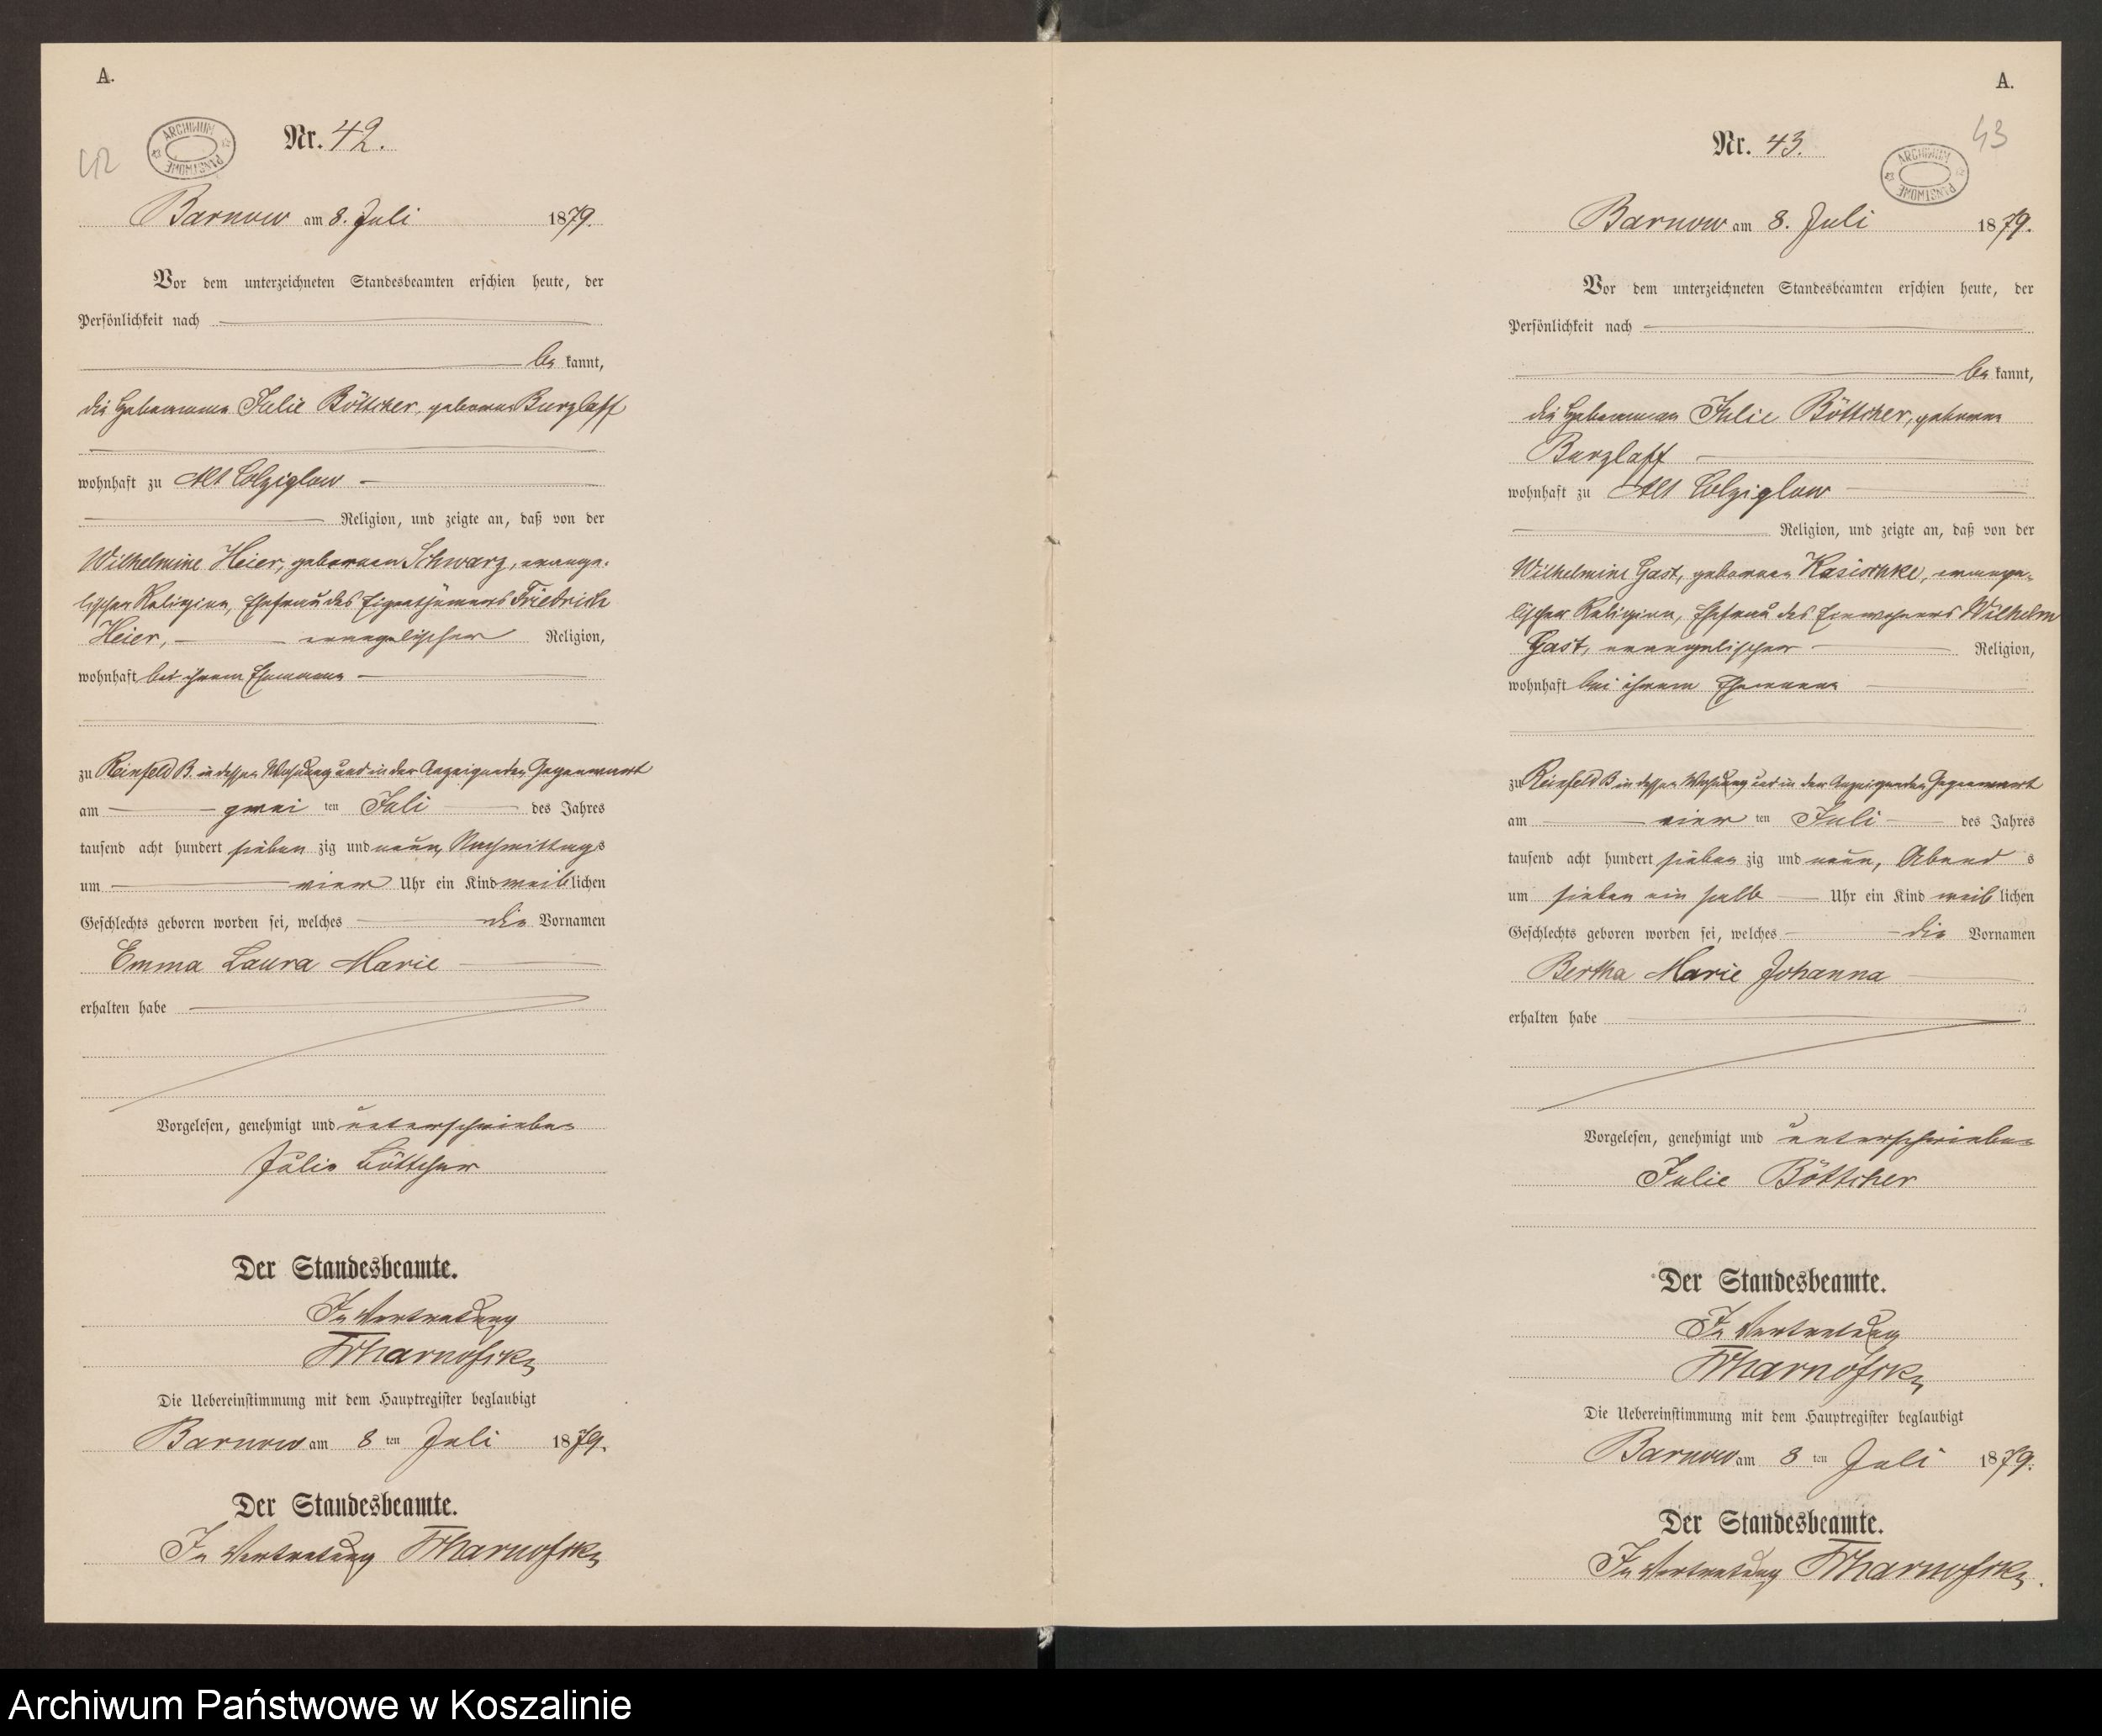 A.
42
ARCHIWUM PAŃSTWOWE
Nr. 42.
Barnow am 8. Juli 1879.
Vor dem unterzeichneten Standesbeamten erschien heute, der
Persönlichkeit nach
be kannt,
die Hebamme Julie Böttcher, geborene Burzlaff
wohnhaft zu Alt Colziglow
Religion, und zeigte an, daß von der
Wilhelmine Heier, geborenen Schwarz, evange-
lischer Religion, Ehefrau des Eigenthümers Friedrich
Heier, evangelischer Religion,
wohnhaft bei ihrem Ehemanne
zu Reinfeld B. in dessen Wohnung und in der Anzeigenden Gegenwart
am zwei ten Juli des Jahres
tausend acht hundert sieben zig und neun, Nachmittags
um vier Uhr ein Kind weiblichen
Geschlechts geboren worden sei, welches die Vornamen
Emma Laura Marie
erhalten habe
Vorgelesen, genehmigt und unterschrieben
Julie Böttcher
Der Standesbeamte.
In Vertretung
Die Uebereinstimmung mit dem Hauptregister beglaubigt
Barnow am 8 ten Juli 1879.
Der Standesbeamte.
In Vertretung
A.
43
ARCHIWUM PAŃSTWOWE
Nr. 43.
Barnow am 8. Juli 1879.
Vor dem unterzeichneten Standesbeamten erschien heute, der
Persönlichkeit nach
be kannt,
die Hebamme Julie Böttcher, geborene
Burzlaff
wohnhaft zu Alt Colziglow
Religion, und zeigte an, daß von der
Wilhelmine Gast, geborenen Kasischke, evange-
lischer Religion, Ehefrau des Einwohners Wilhelm
Gast, evangelischer Religion,
wohnhaft bei ihrem Ehemanne
zu Reinfeld B in dessen Wohnung und in der Anzeigenden Gegenwart
am vier ten Juli des Jahres
tausend acht hundert sieben zig und neun, Abend s
um sieben ein halb Uhr ein Kind weib lichen
Geschlechts geboren worden sei, welches die Vornamen
Bertha Marie Johanna
erhalten habe
Vorgelesen, genehmigt und unterschrieben
Julie Böttcher
Der Standesbeamte.
In Vertretung
Die Uebereinstimmung mit dem Hauptregister beglaubigt
Barnow am 8 ten Juli 1879.
Der Standesbeamte.
In Vertretung
Archiwum Państwowe w Koszalinie